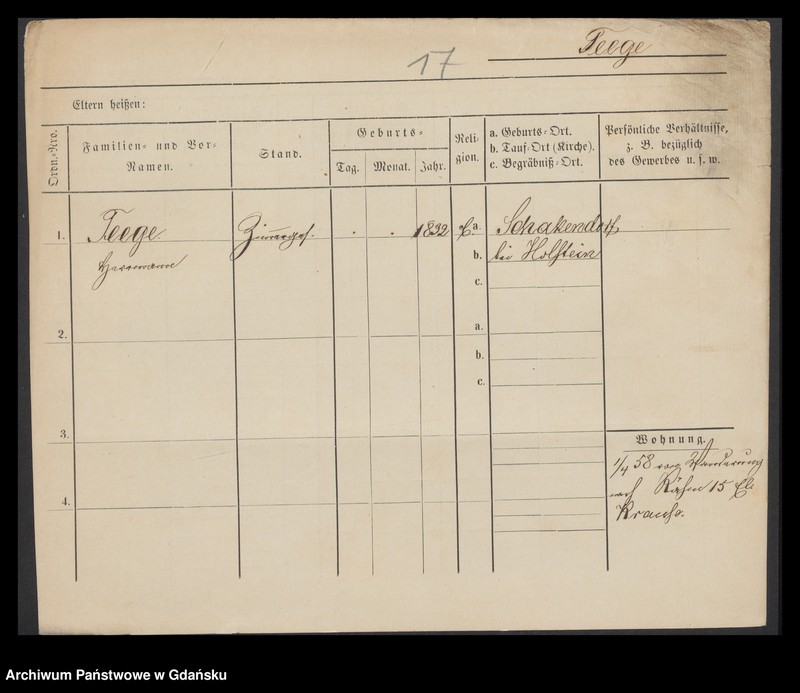 Teege
17
Eltern heißen:
Ordn.-Nro.
Familien- und Vor-
Namen.
Stand.
Geburts-
Tag. Monat. Jahr.
Reli-
gion.
a. Geburts-Ort.
b. Tauf-Ort (Kirche).
c. Begräbniß-Ort.
Persönliche Verhältnisse,
z. B. bezüglich
des Gewerbes u. s. w.
1. Teege Zimerges. . . 1832 a. Schakendorf
Herrmann b. bei Holstein
c.
2. a.
b.
c.
3.
Wohnung.
1/4 58 von Wanderung
nach Rähm 15
4. Krause.
Archiwum Państwowe w Gdańsku